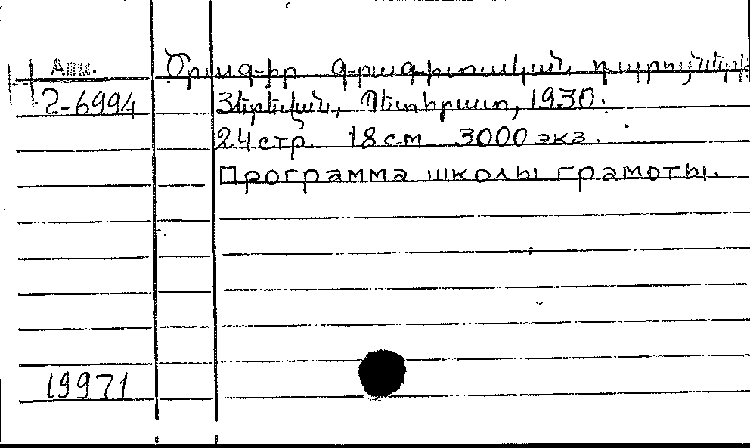 Ծրագիր գրագիտական դպրոցների
2-6994
Յերեվան, Պետհրատ, 1930.
24 стр. 18 см 3000 экз.
Программа школы грамоты.
19971